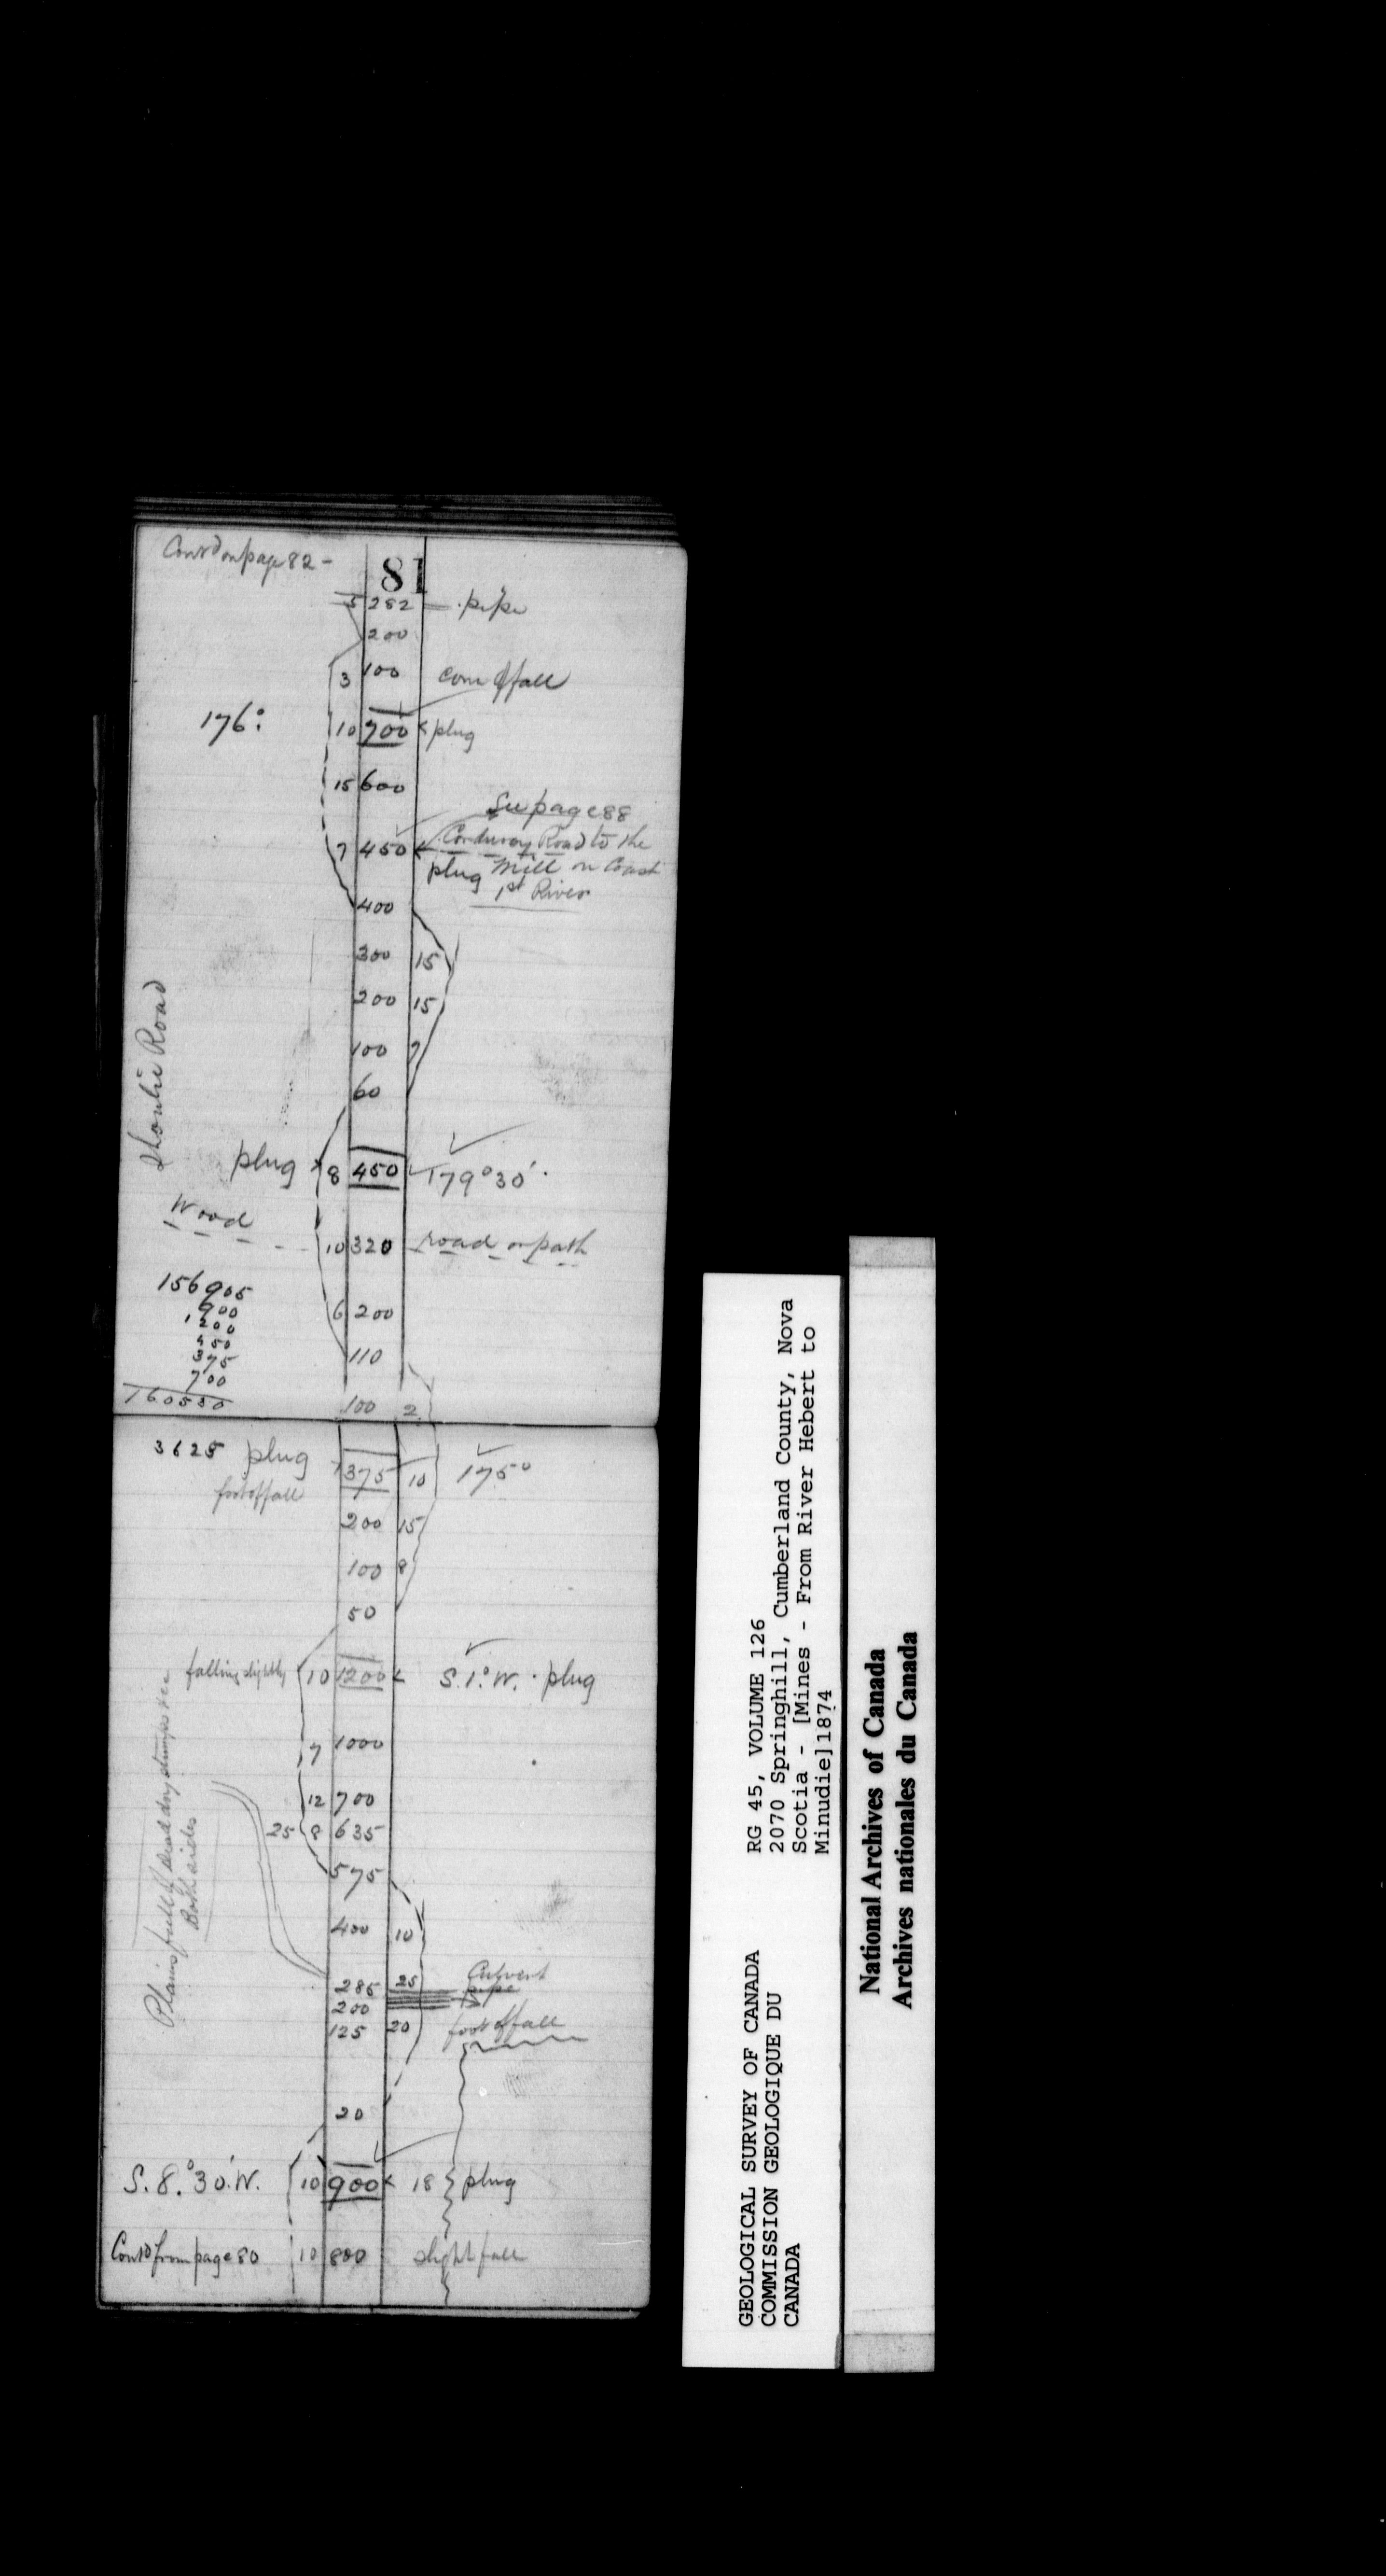 Contd on page 82 -
81
5 282 pipe
200
3 100 com of fall
176° 10 700 plug
15 600
See page 88
7 450 Corduroy Road to the
plug Mill on Coast
1st River
400
300 15
200 15
100 7
60
Shoulie Road
plug 8 450 179°30'
Wood
10 320 road or path
156905
900
1200
450
375
700
160530
6 200
110
100 2
3625 plug 375 10 175°
foot of fall
200 15
100 8
50
falling slightly 10 1200 S.1°W. plug
7 1000
12 700
25 8 635
575
Plains full of dead dry stumps
Both sides
400 10
285 25 Culvert
pipe
200
125 20 foot of fall
20
S.8°30'.W. 10 900 18 plug
Contd from page 80 10 800 slight fall
GEOLOGICAL SURVEY OF CANADA
COMMISSION GEOLOGIQUE DU
CANADA
RG 45, VOLUME 126
2070 Springhill, Cumberland County, Nova
Scotia - [Mines - From River Hebert to
Minudie]1874
National Archives of Canada
Archives nationales du Canada